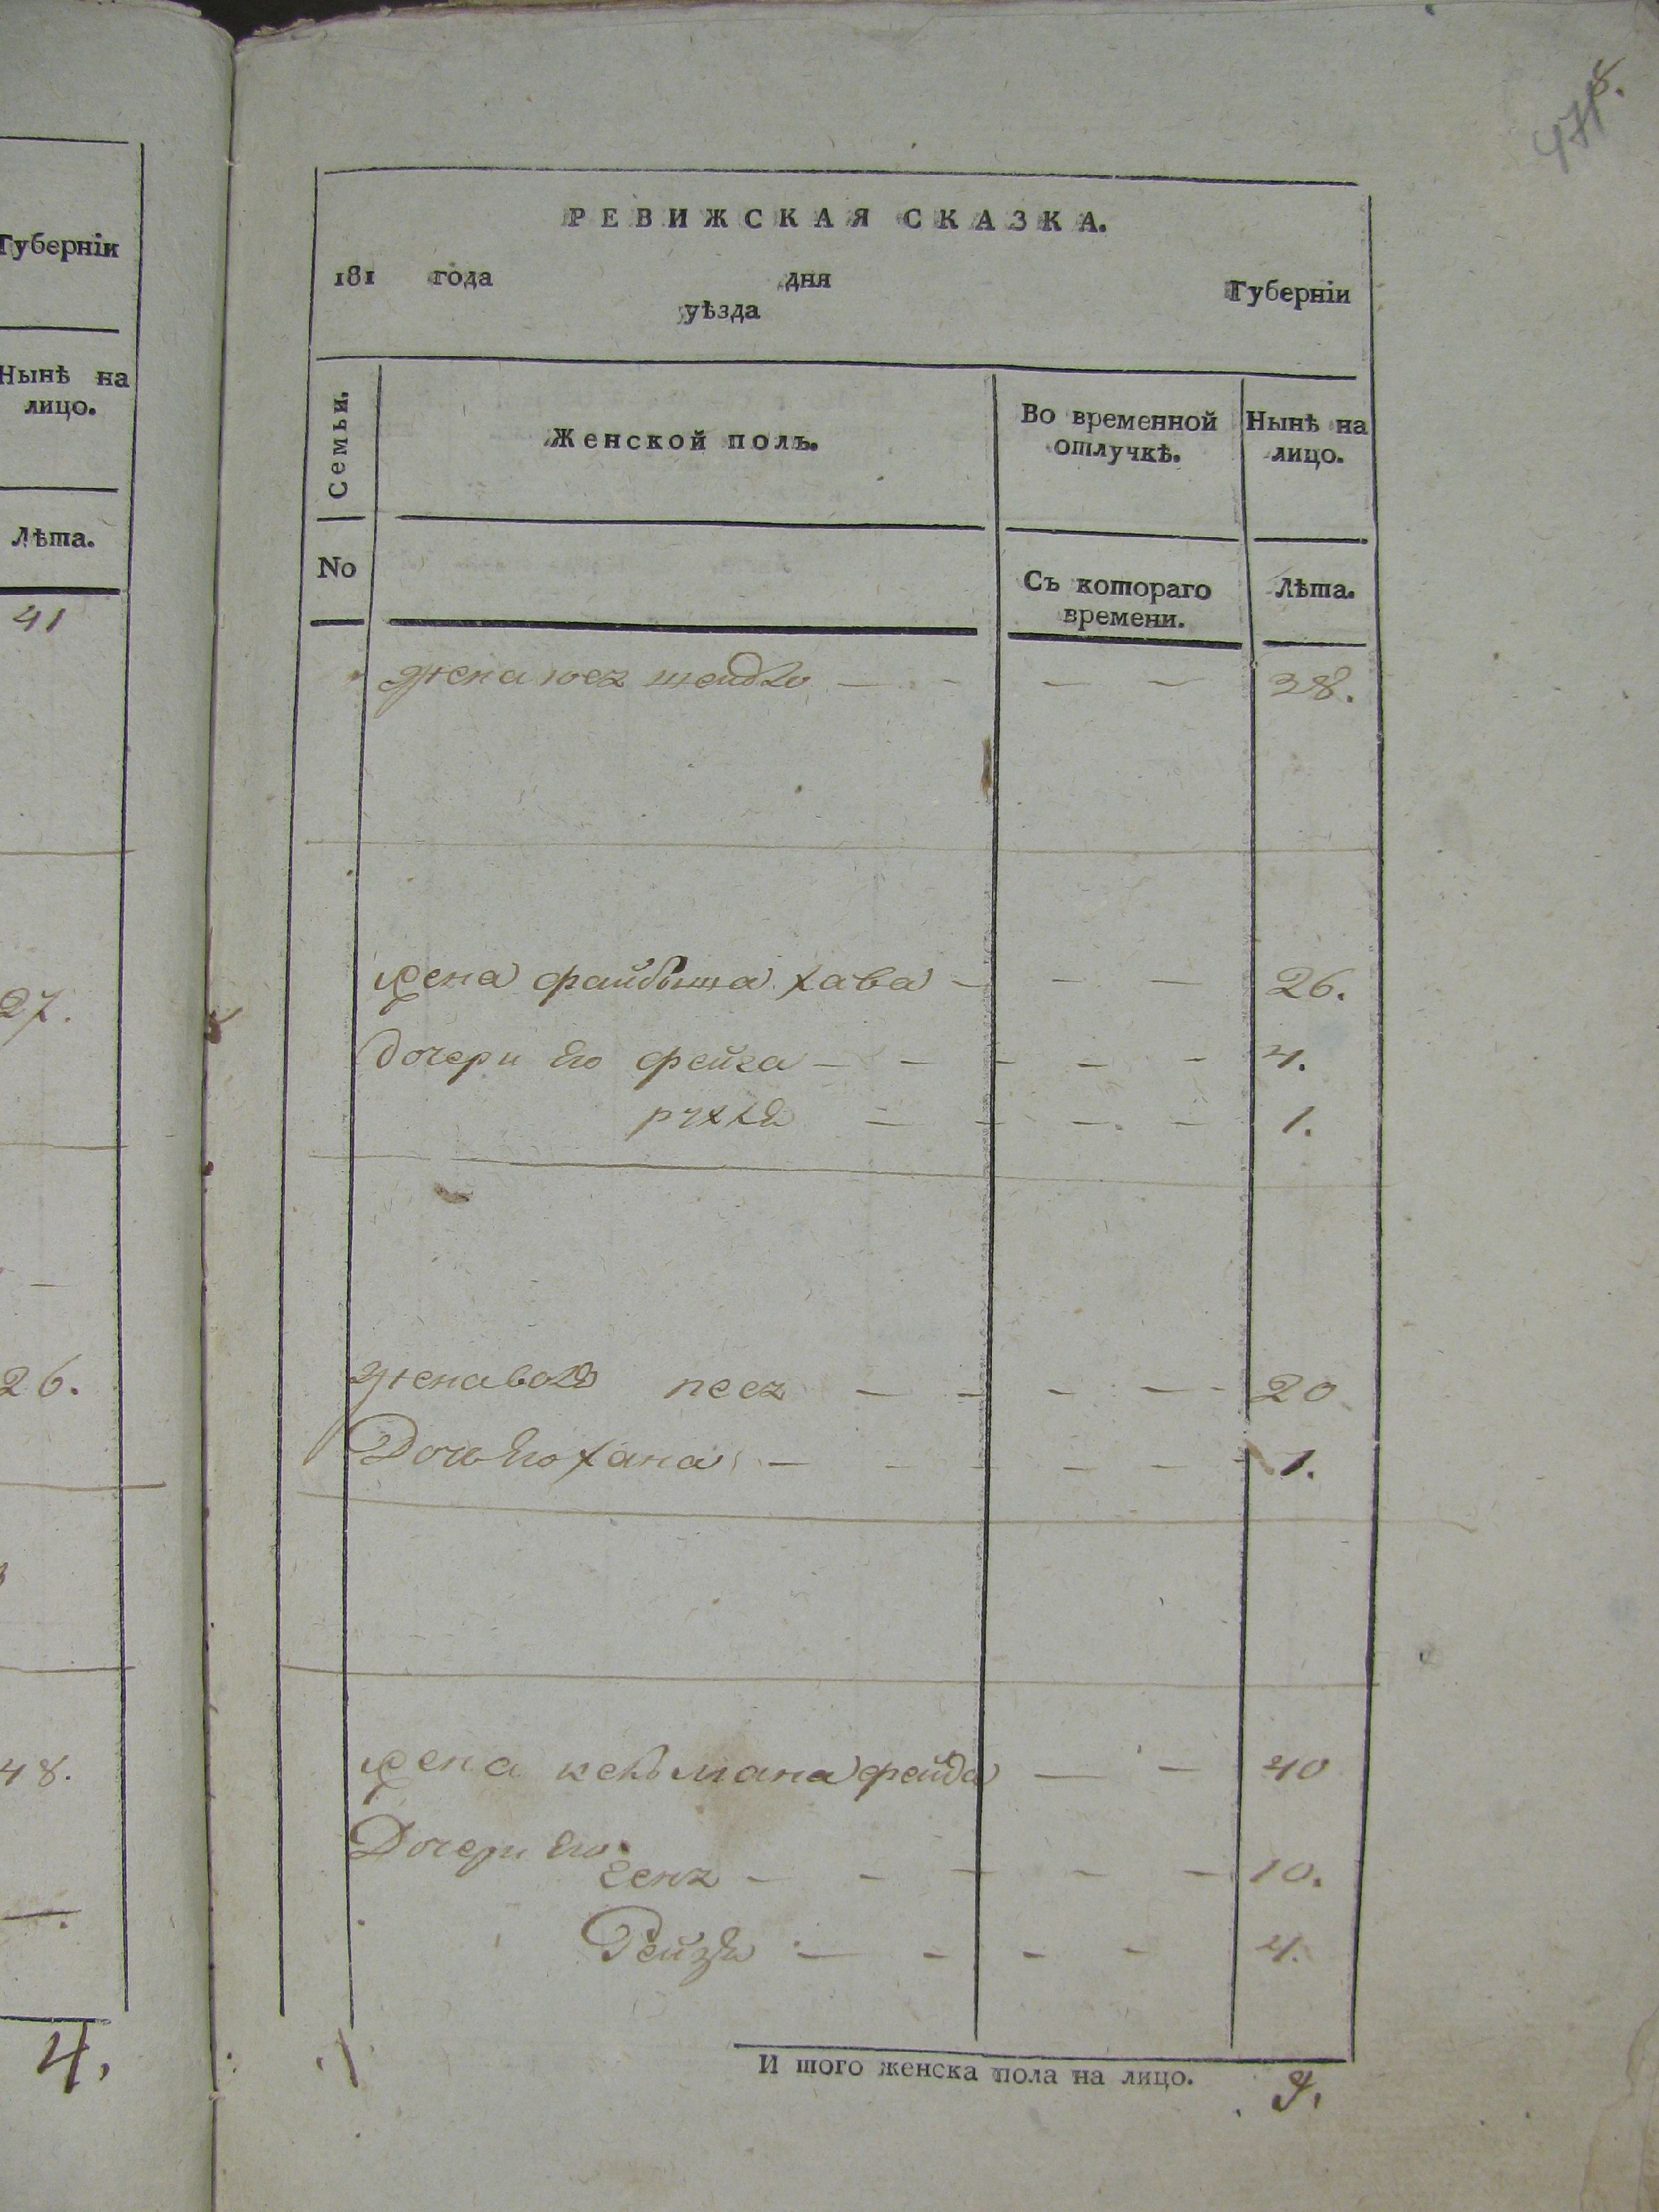 Губернїи
Нынѣ на
лицо.
Лѣта.
41
27.
26.
48.
4.
478.
РЕВИЖСКАЯ СКАЗКА.
181 года дня Губернїи
уѣзда
Семьи. Женской полъ. Во временной Нынѣ на
отлучкѣ. лицо.
No Съ котораго Лѣта.
времени.
жена — — — — 38.
жена файбиша хава — — — 26.
дочери Его фейга — — — — — 4.
рухля — — — — 1.
жена — — — — — 20
Дочь Его хана — — — — — — 1.
жена кельмана фейда — — 40
Дочери Его
— — — — — 10.
Рейзя — — — — 4.
И того женска пола на лицо. 9.